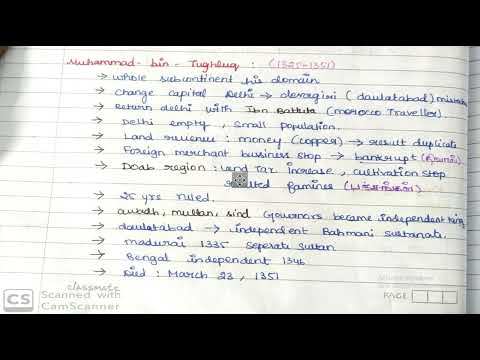 Muhammad-bin-Tughluq : (1325-1351)
→ whole subcontinent his domain
→ change capital Delhi → devagiri (daulatabad) mistake
→ Return delhi with Ibn Battuta (morocco Traveller)
→ Delhi empty, small population.
→ Land revenue : money (copper) → result duplicate
→ Foreign merchant business stop → bankrupt
→ Doab region : Land Tax increase, cultivation stop
resulted famines (பஞ்சங்கள்)
→ 25 yrs ruled.
→ awadh, multan, sind Governors became independent king
→ daulatabad → independent Bahmani sultanate.
→ madurai 1335 seperate sultan
→ Bengal independent 1346
→ Died : March 23, 1351
classmate
PAGE
CS
Scanned with
CamScanner